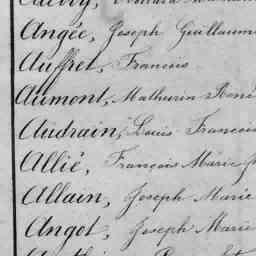 Angée, Joseph Guillaum
Auffret, François
Aumont, Mathurin René
Audrain, Louis François
Allié, François Marie
Allain, Joseph Marie
Angot, Joseph Marie